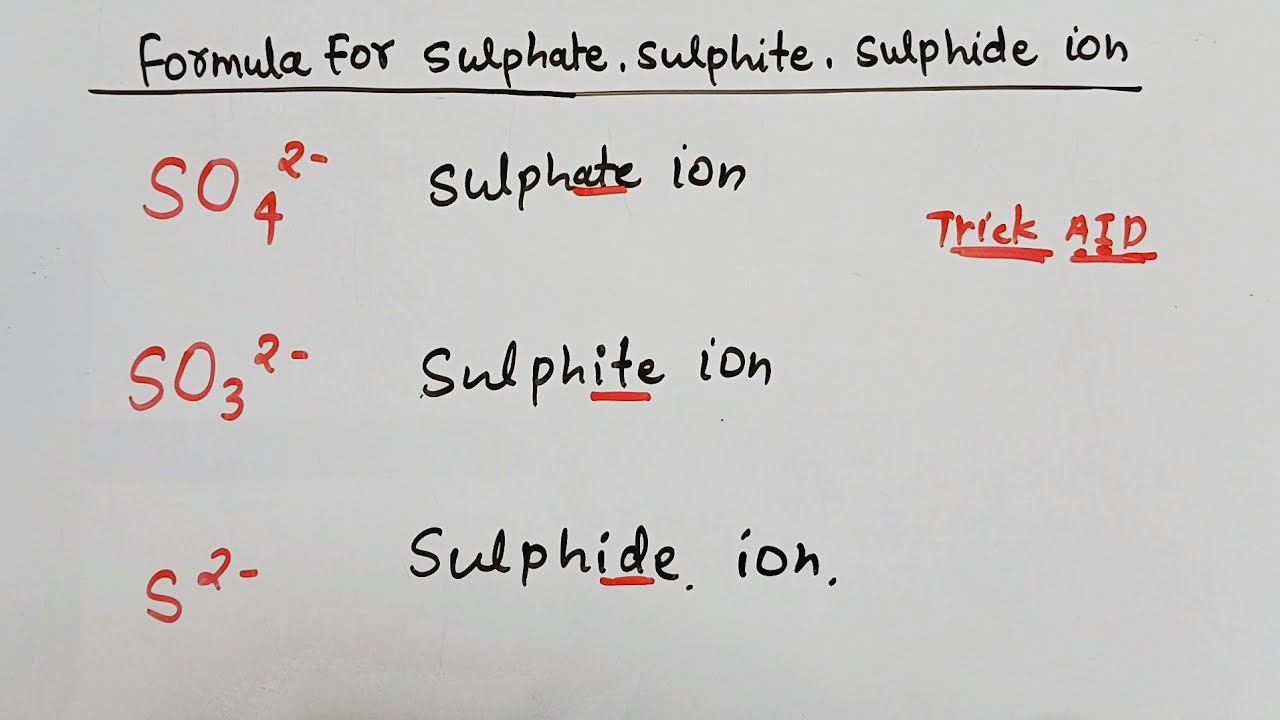 Formula For sulphate, sulphite, sulphide ion
SO₄²⁻ sulphate ion
Trick AID
SO₃²⁻ Sulphite ion
S²⁻ Sulphide. ion.